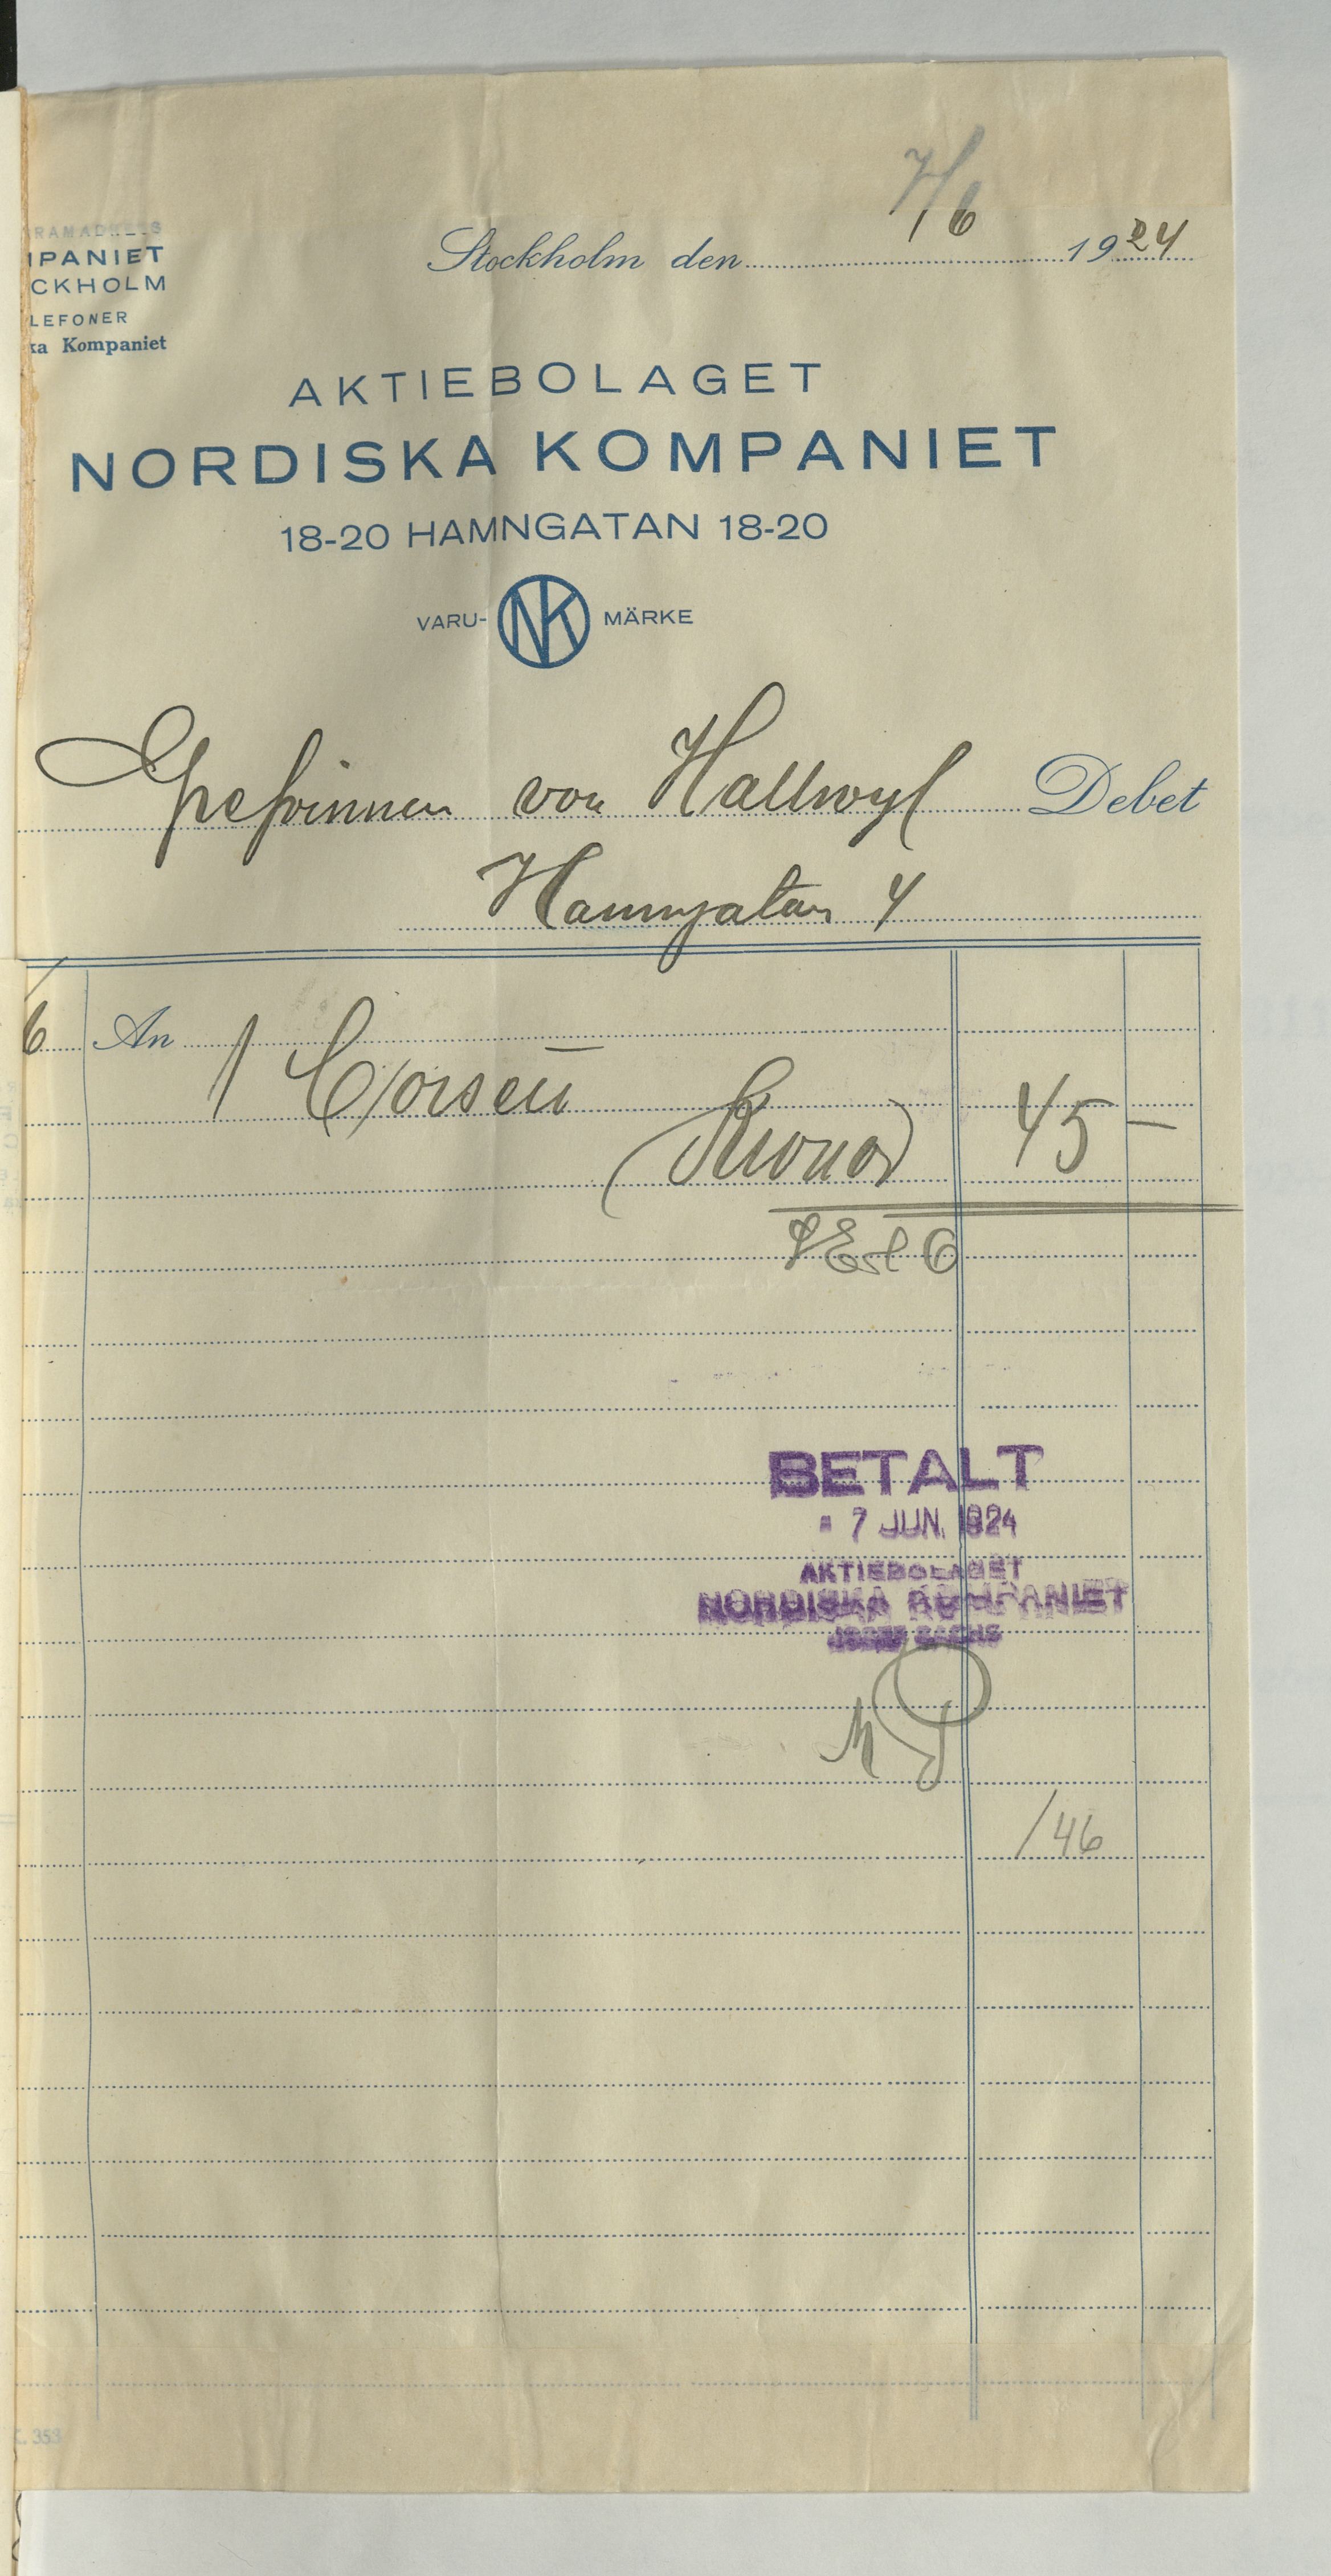 7/6
Stockholm den 1 6 1924
IPANIET
CKHOLM
LEFONER
ka Kompaniet
AKTIEBOLAGET
NORDISKA KOMPANIET
18-20 HAMNGATAN 18-20
VARU- NK MÄRKE
Grefvinnan von Hallwyl Debet
Hamngatan 4
6 An 1 Corsett
Kronor 45 —
BETALT
7 JUN. 1924
AKTIEBOLAGET
NORDISKA KOMPANIET
JOSEF SACHS
/46
353